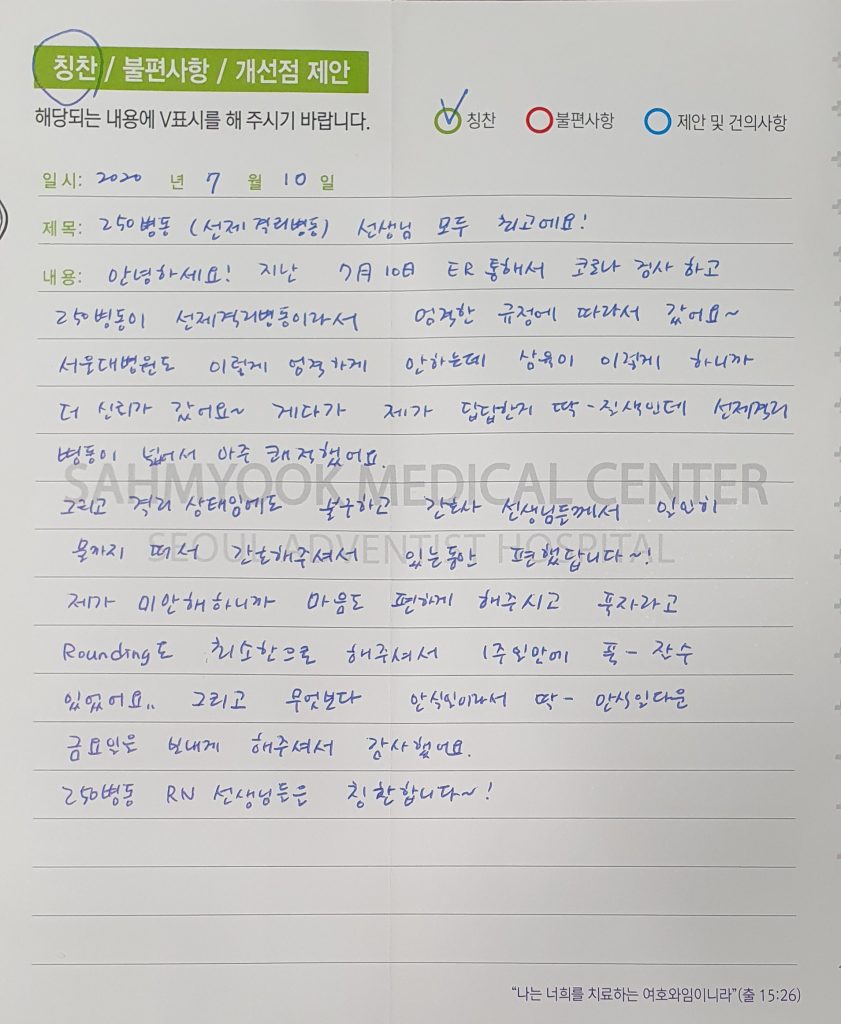 칭찬 / 불편사항 / 개선점 제안
해당되는 내용에 V표시를 해 주시기 바랍니다.
칭찬 불편사항 제안 및 건의사항
일시: 2020 년 7 월 10 일
제목: 250병동 (선제격리병동) 선생님 모두 최고에요!
내용: 안녕하세요! 지난 7月10日 ER 통해서 코로나 검사 하고
250병동이 선제격리병동이라서 엄격한 규정에 따라서 갔어요~
서울대병원도 이렇게 엄격하게 안하는데 삼육이 이렇게 하니까
더 신뢰가 갔어요~ 게다가 제가 답답한거 딱-질색인데 선제격리
병동이 넓어서 아주 쾌적했어요.
SAHMYOOK MEDICAL CENTER
그리고 격리 상태임에도 불구하고 간호사 선생님들께서 일일히
물까지 떠서 간호해주셔서 있는동안 편했답니다~!
SEOUL ADVENTIST HOSPITAL
제가 미안해하니까 마음도 편하게 해주시고 푹자라고
Rounding도 최소한으로 해주셔서 1주일만에 푹- 잔수
있었어요.. 그리고 무엇보다 안식일이라서 딱- 안식일다운
금요일을 보내게 해주셔서 감사했어요.
250병동 RN 선생님들은 칭찬합니다~!
"나는 너희를 치료하는 여호와임이니라"(출 15:26)